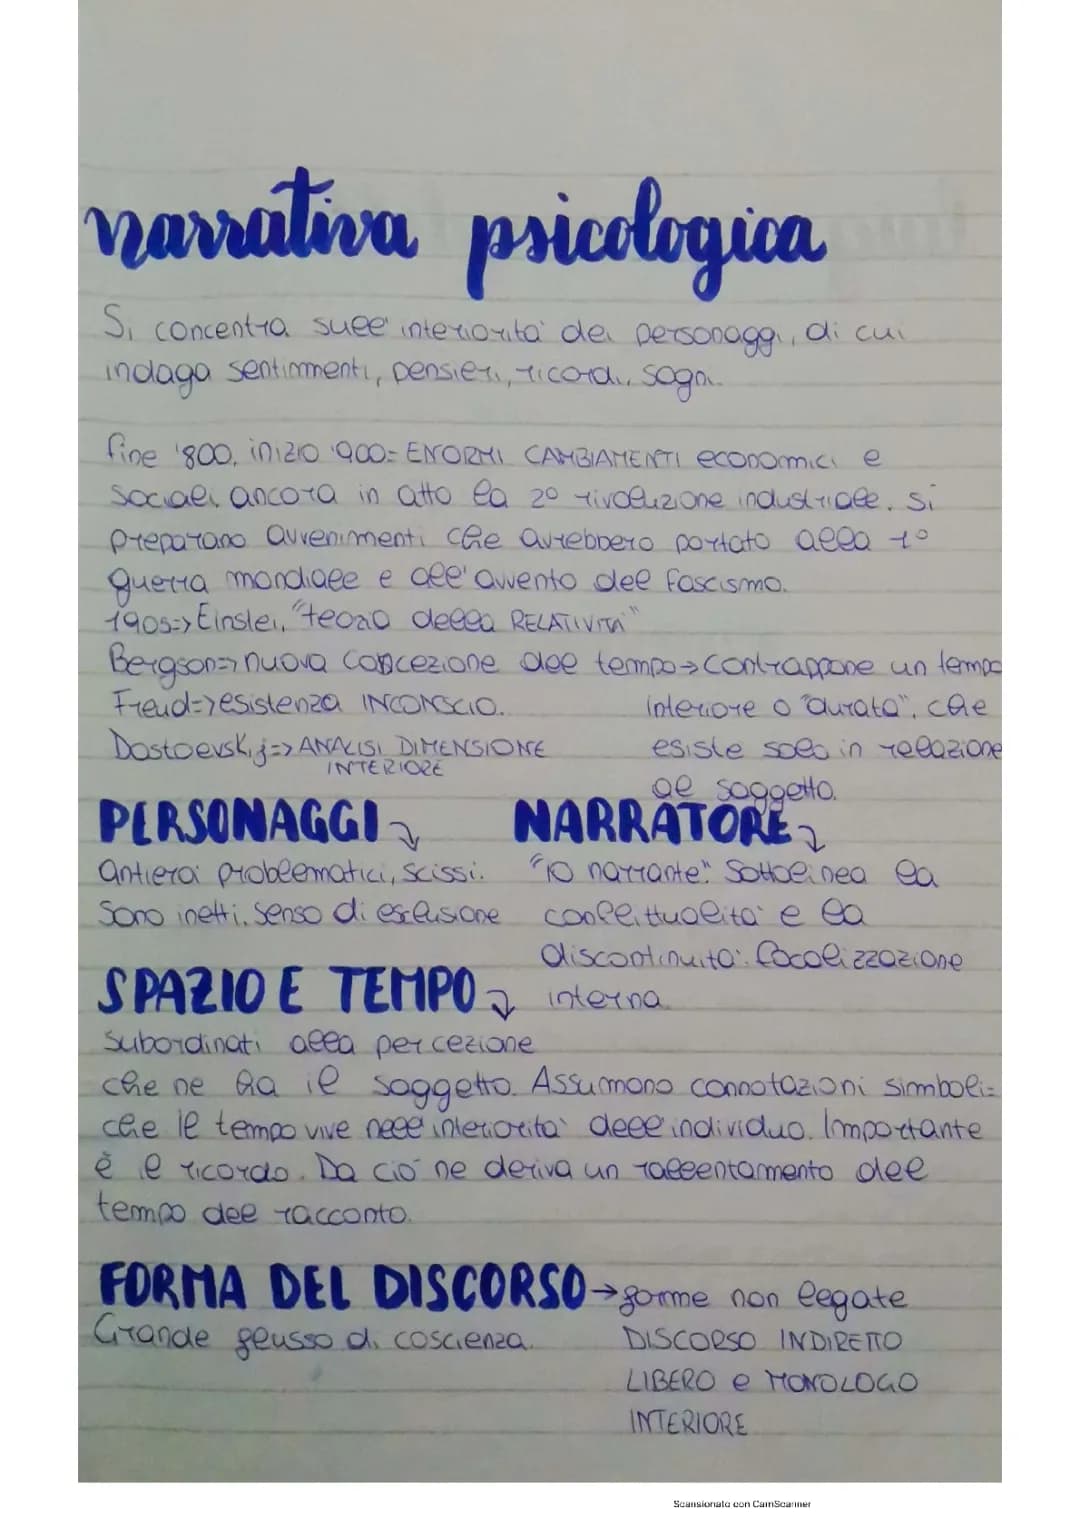 narrativa psicologica
Si concentra sull'interiorità dei personaggi, di cui
indaga sentimenti, pensieri, ricordi, sogni.
fine '800, inizio '900= ENORMI CAMBIAMENTI economici e
sociali, ancora in atto la 2° rivoluzione industriale. Si
preparano avvenimenti che avrebbero portato alla 1°
guerra mondiale e all'avvento del fascismo.
1905=> Einstei, "teoria della RELATIVITÀ"
Bergson=> nuova concezione del tempo→contrappone un tempo
interiore o "durata", che
esiste solo in relazione
al soggetto.
Freud=> esistenza INCONSCIO.
Dostoevskij=> ANALISI DIMENSIONE
INTERIORE
PERSONAGGI
antieroi problematici, scissi.
Sono inetti. Senso di esclusione
NARRATORE
"IO narrante". Sottolinea la
conflittualità e la
discontinuità: focalizzazione
interna
SPAZIO E TEMPO
Subordinati alla percezione
che ne ha il soggetto. Assumono connotazioni simboli=
che Il tempo vive nell'interiorità dell'individuo. Importante
è il ricordo. Da ciò ne deriva un rallentamento del
tempo del racconto.
FORMA DEL DISCORSO→forme non legate
Grande flusso di coscienza.
DISCORSO INDIRETTO
LIBERO e MONOLOGO
INTERIORE
Scansionato con CamScanner